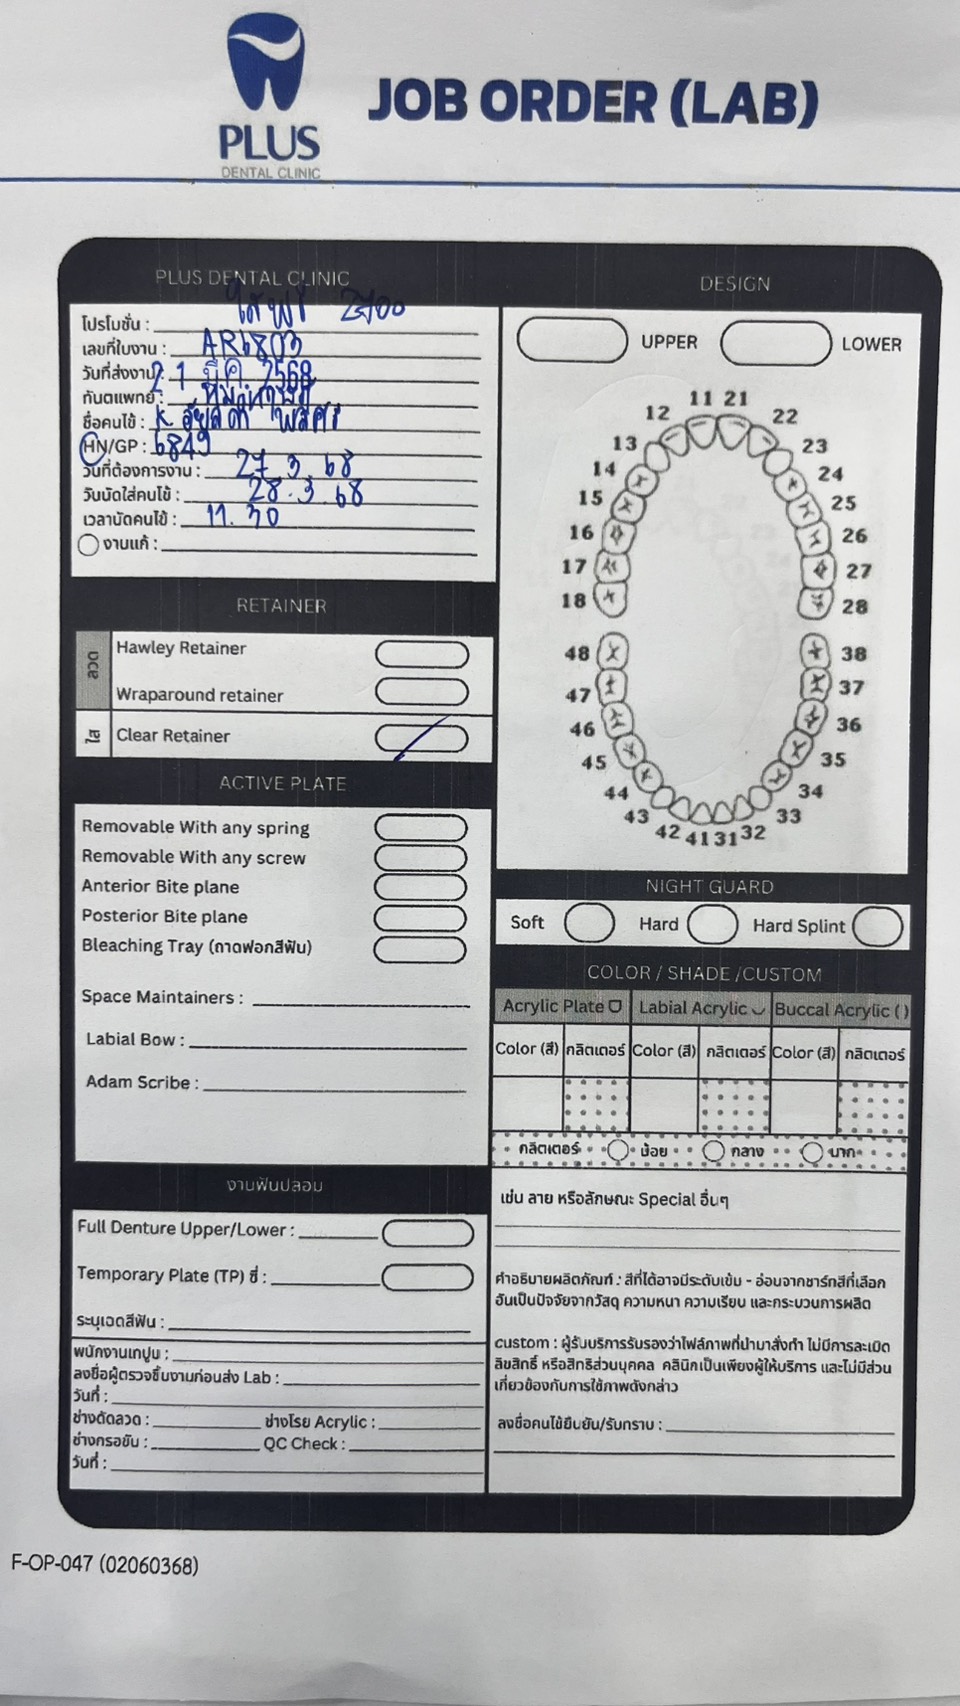 PLUS
DENTAL CLINIC
JOB ORDER (LAB)
PLUS DENTAL CLINIC
โปรโมชั่น : ใสฟรี 2700
เลขที่ใบงาน : AR6803
วันที่ส่งงาน : 21 มี.ค. 2568
ทันตแพทย์ :
ชื่อคนไข้ : K.
HN/GP : 6849
วันที่ต้องการงาน : 27.3.68
วันนัดใส่คนไข้ : 28.3.68
เวลานัดคนไข้ : 11.30
งานแก้ :
RETAINER
ลวด
Hawley Retainer
Wraparound retainer
ใส
Clear Retainer
ACTIVE PLATE
Removable With any spring
Removable With any screw
Anterior Bite plane
Posterior Bite plane
Bleaching Tray (ถาดฟอกสีฟัน)
Space Maintainers :
Labial Bow :
Adam Scribe :
งานฟันปลอม
Full Denture Upper/Lower :
Temporary Plate (TP) ซี่ :
ระบุเฉดสีฟัน :
พนักงานเทปูน :
ลงชื่อผู้ตรวจชิ้นงานก่อนส่ง Lab :
วันที่ :
ช่างดัดลวด : ช่างโรย Acrylic :
ช่างกรอขัน : QC Check :
วันที่ :
DESIGN
UPPER LOWER
11 21
12 22
13 23
14 24
15 25
16 26
17 27
18 28
48 38
47 37
46 36
45 35
44 34
43 33
42 41 31 32
NIGHT GUARD
Soft Hard Hard Splint
COLOR / SHADE /CUSTOM
Acrylic Plate Labial Acrylic Buccal Acrylic ( )
Color (สี) กลิตเตอร์ Color (สี) กลิตเตอร์ Color (สี) กลิตเตอร์
กลิตเตอร์ น้อย กลาง มาก
เช่น ลาย หรือลักษณะ Special อื่นๆ
คำอธิบายผลิตภัณฑ์ : สีที่ได้อาจมีระดับเข้ม - อ่อนจากชาร์ทสีที่เลือก
อันเป็นปัจจัยจากวัสดุ ความหนา ความเรียบ และกระบวนการผลิต
custom : ผู้รับบริการรับรองว่าไฟล์ภาพที่นำมาสั่งทำ ไม่มีการละเมิด
ลิขสิทธิ์ หรือสิทธิส่วนบุคคล คลินิกเป็นเพียงผู้ให้บริการ และไม่มีส่วน
เกี่ยวข้องกับการใช้ภาพดังกล่าว
ลงชื่อคนไข้ยืนยัน/รับทราบ :
F-OP-047 (02060368)